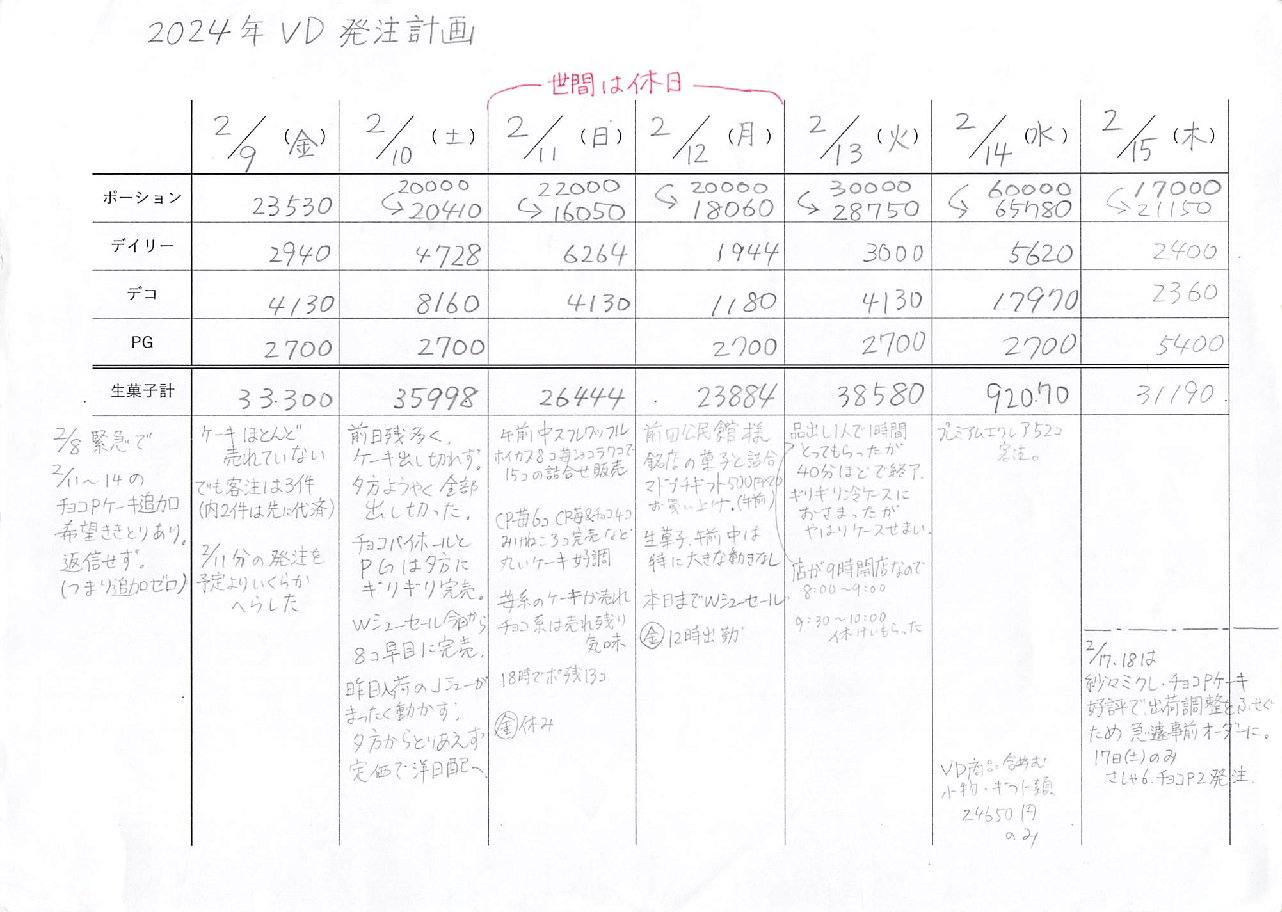 2024年 VD 発注計画
世間は休日
2/9 (金) 2/10 (土) 2/11 (日) 2/12 (月) 2/13 (火) 2/14 (水) 2/15 (木)
20000 22000 20000 30000 60000 17000
ポーション 23530 20410 16050 18060 28750 65780 21150
デイリー 2940 4728 6264 1944 3000 5620 2400
デコ 4130 8160 4130 1180 4130 17970 2360
PG 2700 2700 2700 2700 2700 5400
生菓子計 33300 35998 26444 23884 38580 92070 31190
2/8 緊急で
2/11~14の
チョコPケーキ追加
希望ききとりあり。
返信せず。
(つまり追加ゼロ)
ケーキほとんど
売れていない
でも客注は3件
(内2件は先に代済)
2/11分の発注を
予定よりいくらか
へらした
前日残多く、
ケーキ出し切れず。
夕方ようやく全部
出し切った。
チョコパイホールと
PGは夕方に
ギリギリ完売。
Wシューセール今日から
8コ早目に完売。
昨日入荷のJシューが
まったく動かず、
夕方からとりあえず
定価で洋日配へ。
午前中スフレワッフル
15コの詰合せ販売
CP苺6コ CP苺&チョコ4コ
みけねころ3コ完売など
丸いケーキ好調
苺系のケーキが売れ
チョコ系は売れ残り
気味
18時でポ残13コ
金休み
前田公民館様
銘店の菓子と詰合
お買い上げ。(午前)
生菓子、午前中は
特に大きな動きなし
本日までWシューセール
金12時出勤
品出し1人で1時間
とってもらったが
40分ほどで終了。
ギリギリ冷ケースに
おさまったが
やはりケースせまい。
店が9時開店なので
8:00~9:00
9:30~10:00
休けいもらった
プレミアムエクレア52コ
客注。
VD商品含めむ
小物・ギフト類
24650円
のみ
2/17.18は
紗々ミクレ・チョコPケーキ
好評で出荷調整をふせぐ
ため急遽事前オーダーに。
17日(土)のみ
さしゃ6.チョコP2発注.